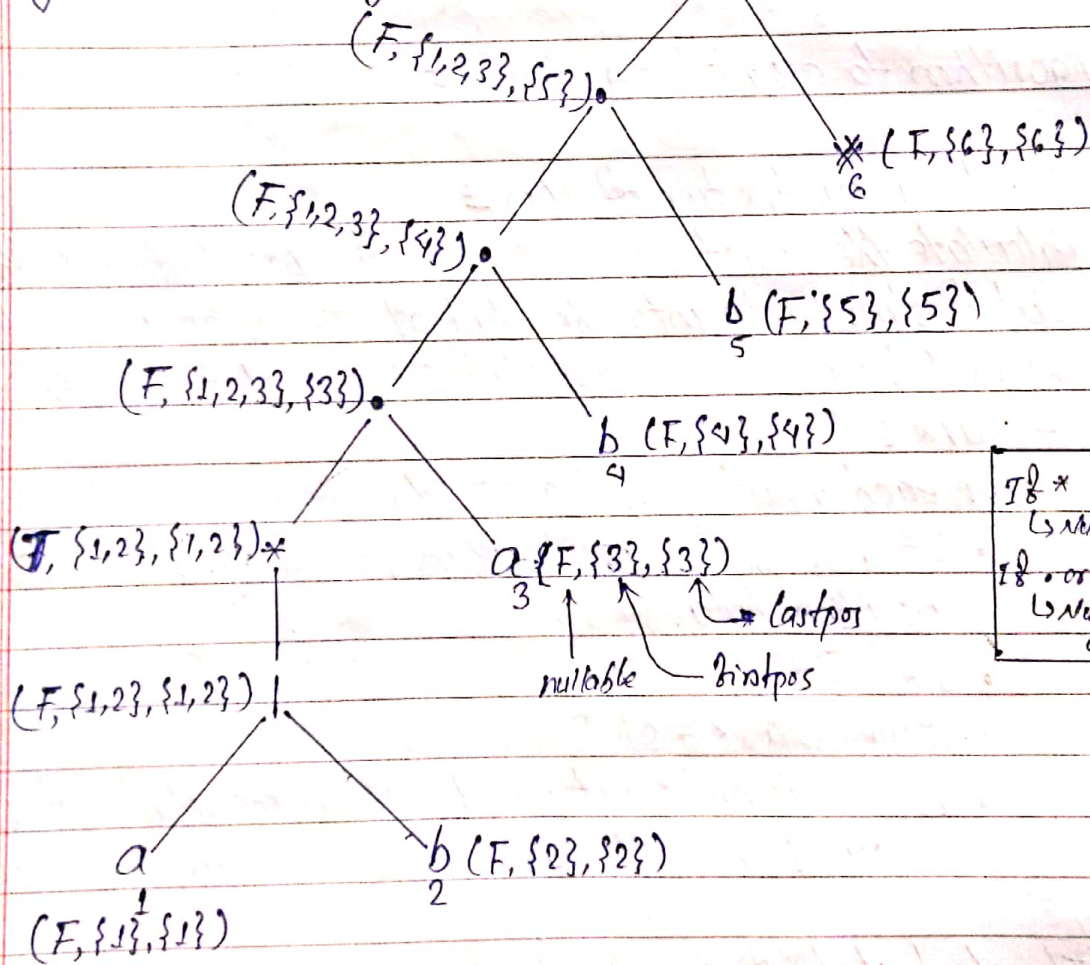 (F, {1,2,3}, {5})
* (F, {6}, {6})
6
(F, {1,2,3}, {4})
b (F, {5}, {5})
5
(F, {1,2,3}, {3})
b (F, {4}, {4})
4
If *
(T, {1,2}, {1,2}) *
a (F, {3}, {3})
3
If . or
lastpos
nullable
firstpos
(F, {1,2}, {1,2}) |
a
b (F, {2}, {2})
1
2
(F, {1}, {1})